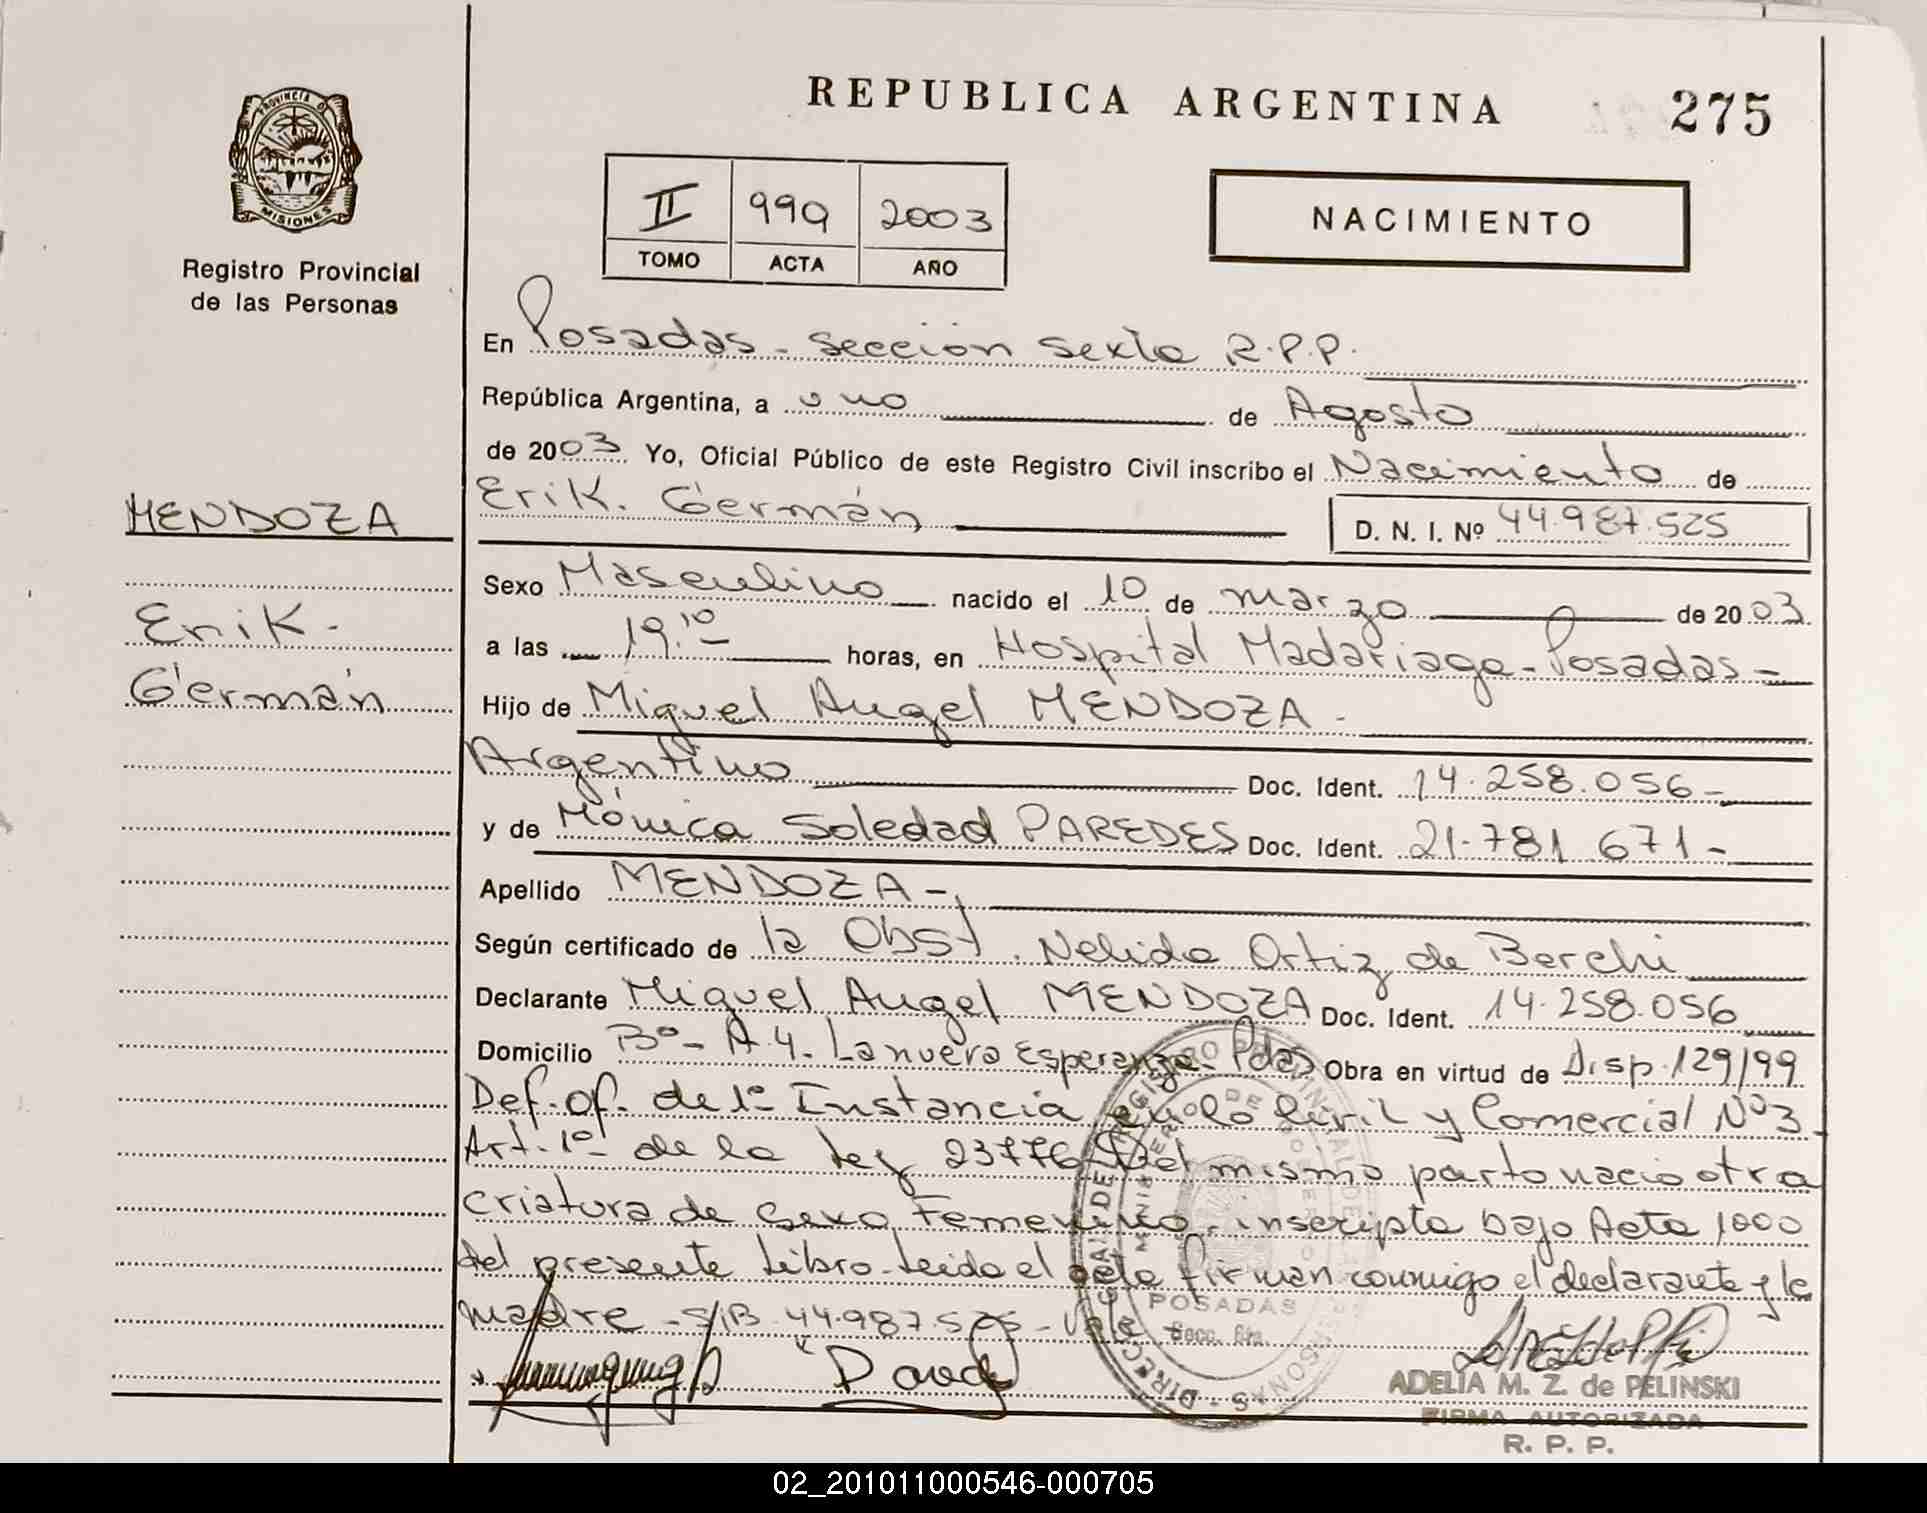 PROVINCIA DE
MISIONES
Registro Provincial
de las Personas
REPUBLICA ARGENTINA
275
II 999 2003
TOMO ACTA AÑO
NACIMIENTO
En Posadas - Sección Sexta R.P.P.
República Argentina, a uno de Agosto
de 2003 Yo, Oficial Público de este Registro Civil inscribo el Nacimiento de
MENDOZA
Erik. Germán
D. N. I. Nº 44.987.525
Sexo Masculino nacido el 10 de marzo de 2003
Erik.
a las 19.10 horas, en Hospital Madariaga - Posadas -
Germán
Hijo de Miguel Angel MENDOZA -
Argentino Doc. Ident. 14.258.056 -
y de Mónica Soledad PAREDES Doc. Ident. 21.781 671 -
Apellido MENDOZA -
Según certificado de la Obst. Nelida Ortiz de Berchi
Declarante Miguel Angel MENDOZA Doc. Ident. 14.258.056
Domicilio Bº - A.4. La nueva Esperanza - Pdas Obra en virtud de Disp. 129/99
Def. of. de 1ª Instancia en lo Civil y Comercial Nº 3 -
Art. 1º de la Ley 23776 Del mismo parto nacio otra
criatura de sexo Femenino, inscripta bajo Acta 1000
del presente Libro - Leida el acta firman conmigo el declarante y la
madre - S/B 44.987.525 - Vale
POSADAS
Secc. 6ta.
ADELIA M. Z. de PELINSKI
FIRMA AUTORIZADA
R. P. P.
02_201011000546-000705